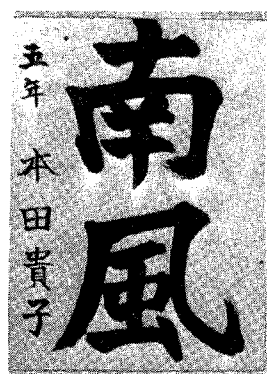 南風
五年 本田貴子